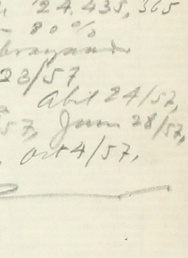 24,435,365
80%
23/57
Abil 24/57,
57, Juen 28/57,
Oct 4/57,